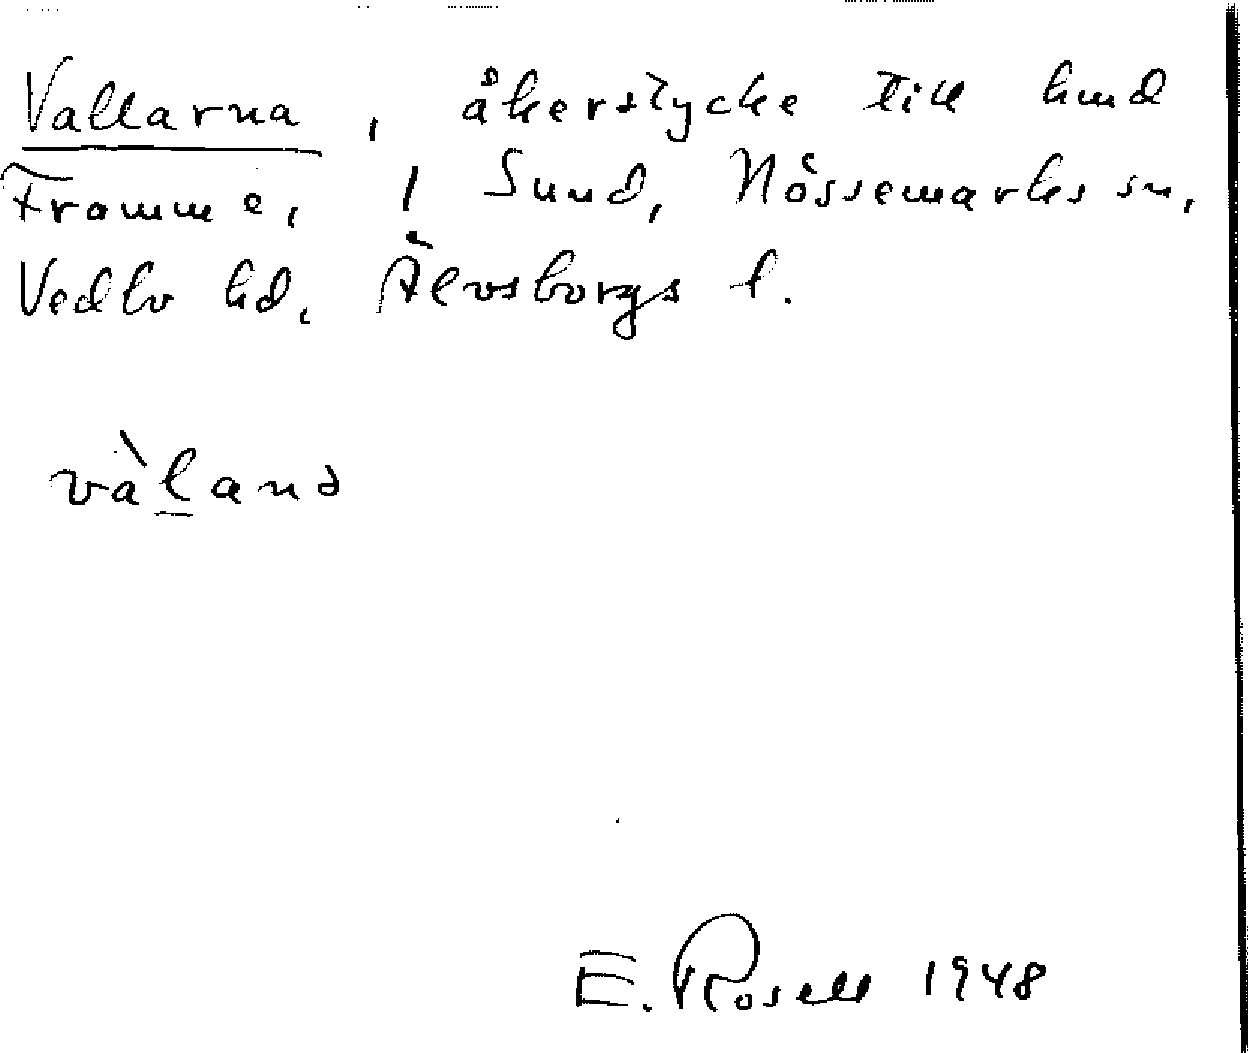 Vallarna, åkerstycke till hmd
Framme, 1 Sund, Nössemarks sn,
Vedbo hd, Älvsborgs l.
vàland
E. Rosell 1948